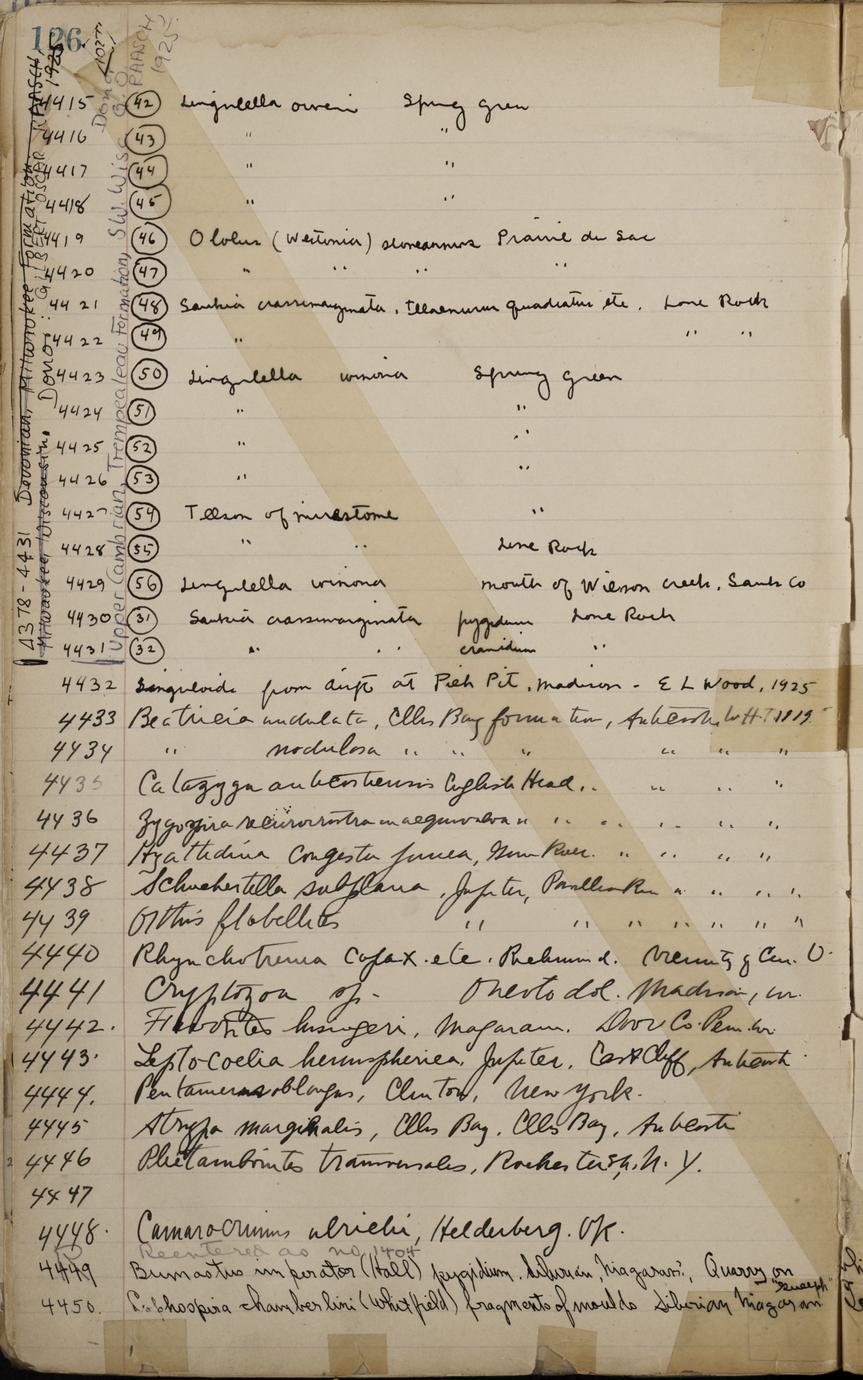 126
4378-4431 Devonian, Milwaukee Formation
Milwaukee, Wisconsin. Donor: GILBERT OSCAR RAASCH, 1925
Upper Cambrian, Trempealeau Formation, S.W. Wisc. Donor G.O. RAASCH 1925
4415 42 Lingulella oweni Spring Green
4416 43 " "
4417 44 " "
4418 45 " "
4419 46 Obolus (Westonia) stoneanus Prairie du Sac
4420 47 " " " "
4421 48 Saukia crassimarginata, Illaenurus quadratus etc. Lone Rock
4422 49 " " "
4423 50 Lingulella winona Spring Green
4424 51 " "
4425 52 " "
4426 53 " "
4427 54 Telson of merestome "
4428 55 " " Lone Rock
4429 56 Lingulella winona mouth of Wilson creek, Sauk Co
4430 31 Saukia crassimarginata pygidium Lone Rock
4431 32 " " cranidium "
4432 Linguloids from drift at Pieh Pit, Madison - E L Wood, 1925
4433 Beatricia undulata, Ellis Bay formation, Anticosti, W.H.T. 1919
4434 " nodulosa " " " " " "
4435 Catazyga anticostiensis English Head " " " "
4436 Zygospira " " " " " "
4437 Hyattidina congesta Gun River " " " "
4438 Schuchertella subplana, Jupiter, " " " "
4439 Orthis flabellites " " " " " " "
4440 Rhynchotrema capax etc. Richmond. Vicinity of Cin. O.
4441 Cryptozoa sp. Oneota dol. Madison, Wis.
4442. Favorites hisingeri, Niagaran. Door Co. Pen. Wis.
4443. Leptocoelia hemispherica, Jupiter, East Cliff, Anticosti
4444. Pentamerus oblongus, Clinton, New York.
4445 Atrypa marginalis, Ellis Bay, Ellis Bay, Anticosti
4446 Plectambonites transversales, Rochester sh, N.Y.
4447
4448. Camarocrinus ulrichi, Helderberg. Ok.
Reentered as no. 1404
4449 Bumastus imperator (Hall) pygidium. Silurian, Niagaran?, Quarry on
4450. Lophospira chamberlini (Whitfield) fragments of moulds Silurian Niagaran